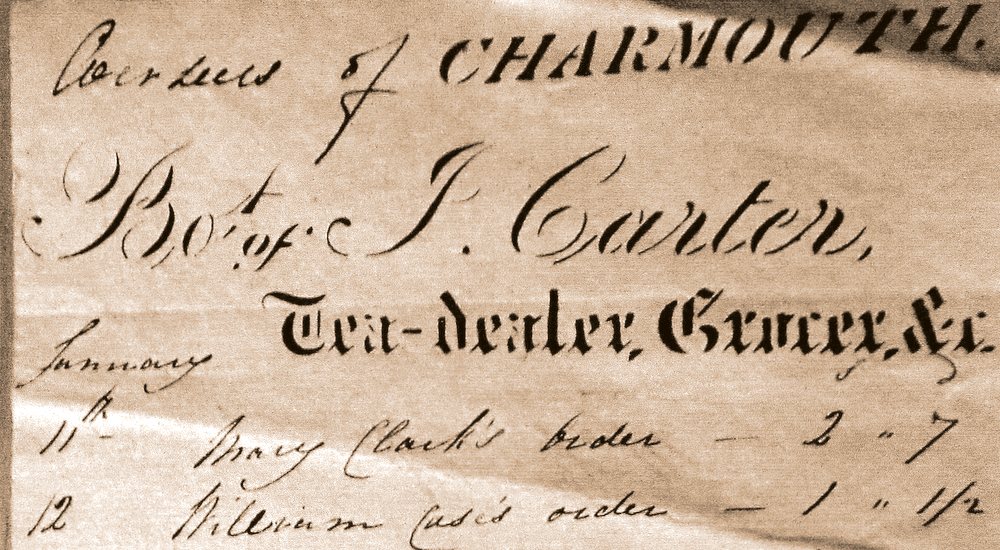 Overseers of CHARMOUTH.
Bot. of J. Carter,
Tea-dealer, Grocer, &c.
January
11th Mary Clark's order — 2 " 7
12 William Case's order — 1 " 1/2